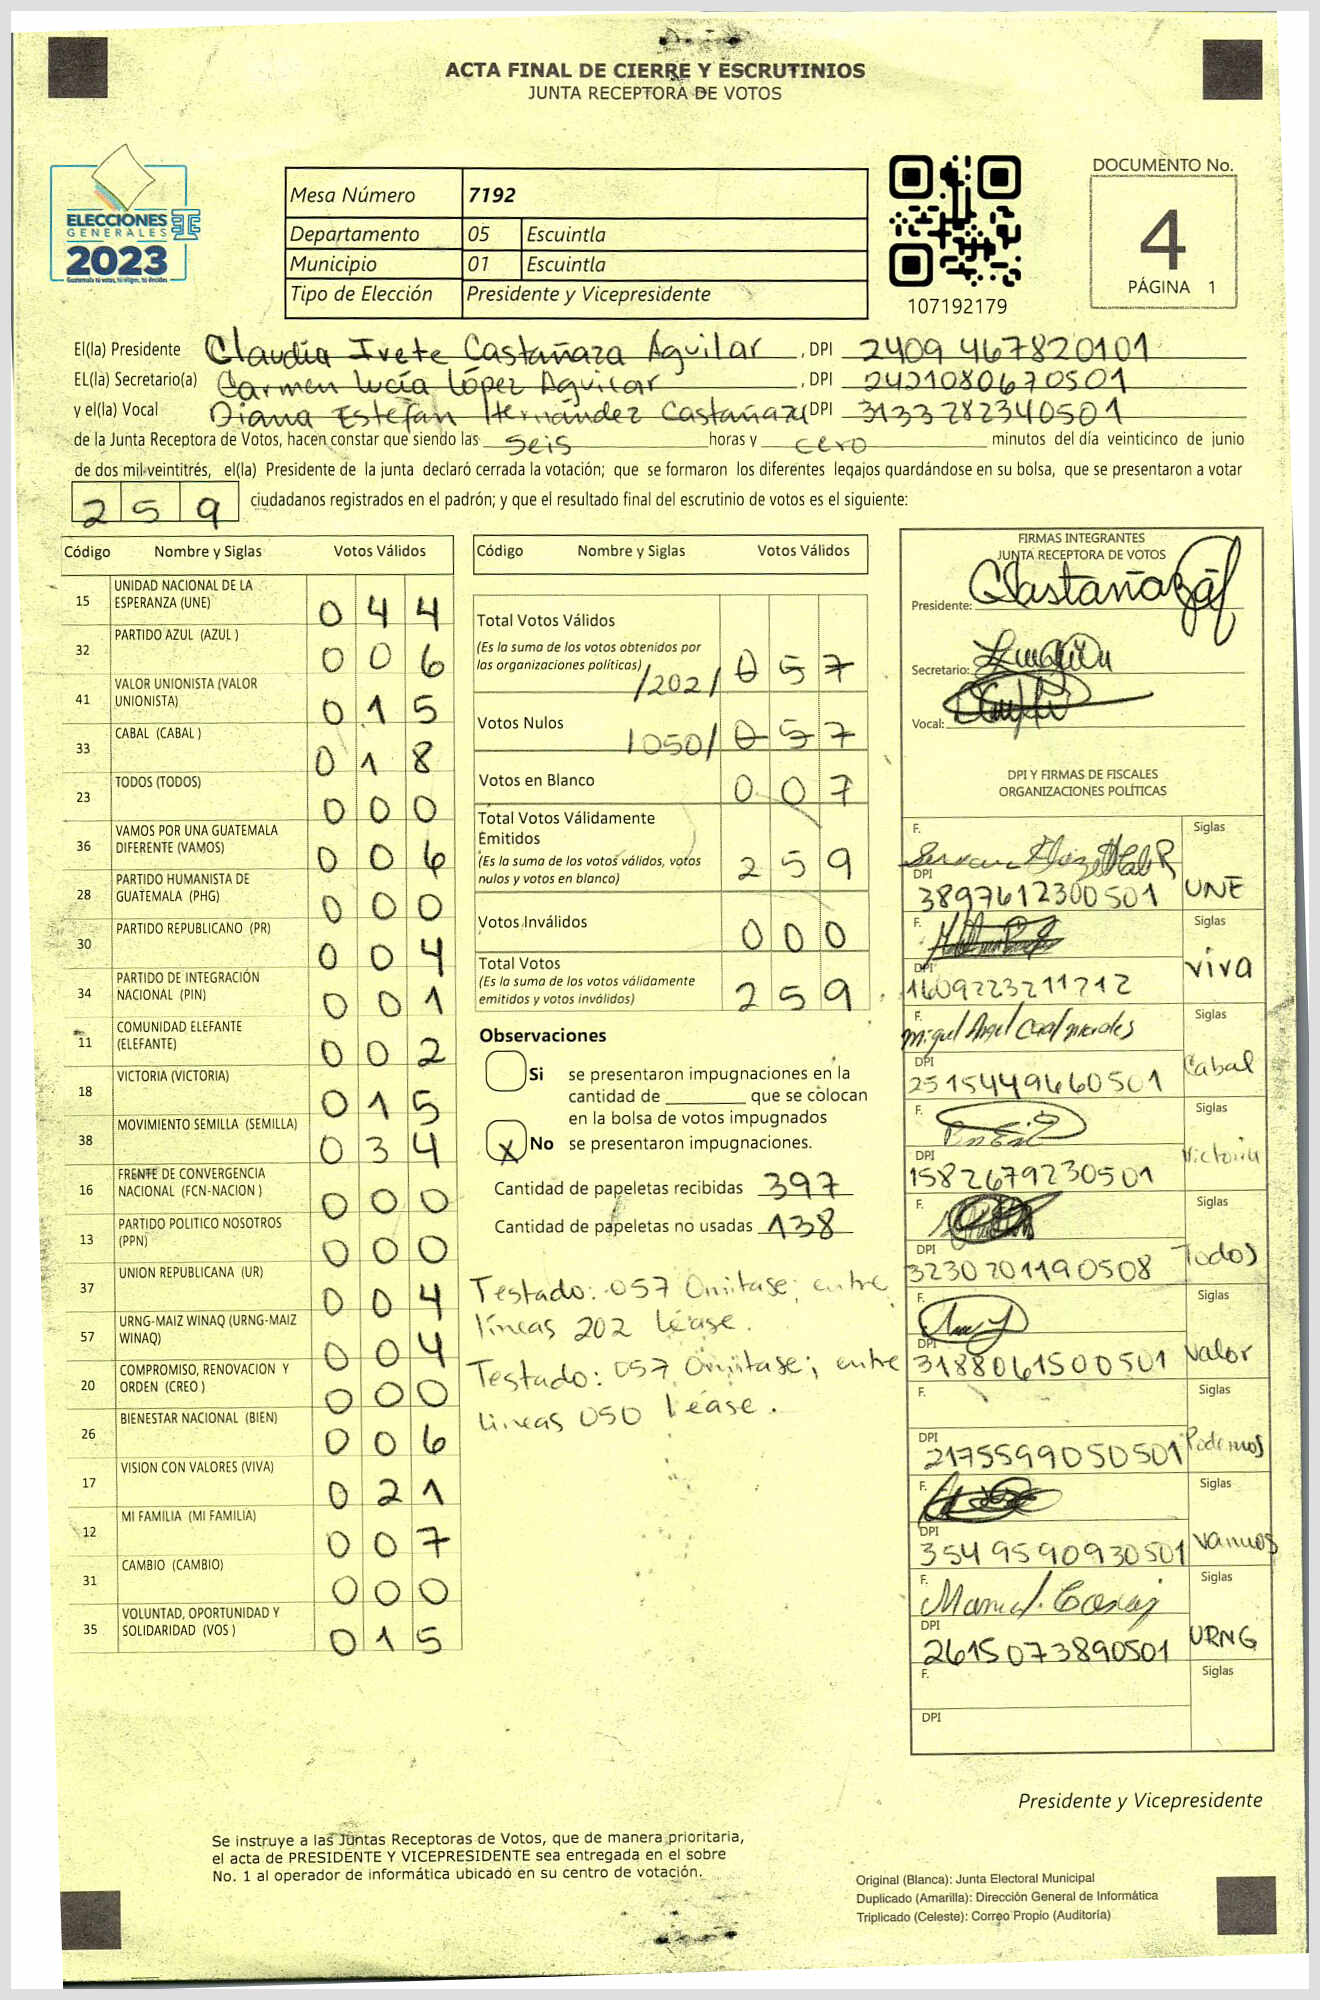 ACTA FINAL DE CIERRE Y ESCRUTINIOS
JUNTA RECEPTORA DE VOTOS
ELECCIONES
GENERALES
2023
Guatemala tú votas, tú eliges, tú decides
Mesa Número 7192
Departamento 05 Escuintla
Municipio 01 Escuintla
Tipo de Elección Presidente y Vicepresidente
107192179
DOCUMENTO No.
4
PÁGINA 1
El(la) Presidente Claudia Ivete Castañaza Aguilar , DPI 2409 467820101
EL(la) Secretario(a) Carmen Lucía López Aguilar , DPI 2421080670501
y el(la) Vocal Diana Estefan Hernández Castañaza DPI 3133282340501
de la Junta Receptora de Votos, hacen constar que siendo las seis horas y cero minutos del día veinticinco de junio
de dos mil veintitrés, el(la) Presidente de la junta declaró cerrada la votación; que se formaron los diferentes legajos guardándose en su bolsa, que se presentaron a votar
259 ciudadanos registrados en el padrón; y que el resultado final del escrutinio de votos es el siguiente:
Código Nombre y Siglas Votos Válidos
15 UNIDAD NACIONAL DE LA ESPERANZA (UNE) 044
32 PARTIDO AZUL (AZUL ) 006
41 VALOR UNIONISTA (VALOR UNIONISTA) 015
33 CABAL (CABAL ) 018
23 TODOS (TODOS) 000
36 VAMOS POR UNA GUATEMALA DIFERENTE (VAMOS) 006
28 PARTIDO HUMANISTA DE GUATEMALA (PHG) 000
30 PARTIDO REPUBLICANO (PR) 004
34 PARTIDO DE INTEGRACIÓN NACIONAL (PIN) 001
11 COMUNIDAD ELEFANTE (ELEFANTE) 002
18 VICTORIA (VICTORIA) 015
38 MOVIMIENTO SEMILLA (SEMILLA) 034
16 FRENTE DE CONVERGENCIA NACIONAL (FCN-NACION ) 000
13 PARTIDO POLITICO NOSOTROS (PPN) 000
37 UNION REPUBLICANA (UR) 004
57 URNG-MAIZ WINAQ (URNG-MAIZ WINAQ) 004
20 COMPROMISO, RENOVACION Y ORDEN (CREO ) 000
26 BIENESTAR NACIONAL (BIEN) 006
17 VISION CON VALORES (VIVA) 021
12 MI FAMILIA (MI FAMILIA) 007
31 CAMBIO (CAMBIO) 000
35 VOLUNTAD, OPORTUNIDAD Y SOLIDARIDAD (VOS ) 015
Código Nombre y Siglas Votos Válidos
Total Votos Válidos
(Es la suma de los votos obtenidos por
las organizaciones políticas) /202/ 057
Votos Nulos /050/ 057
Votos en Blanco 007
Total Votos Válidamente
Emitidos
(Es la suma de los votos válidos, votos
nulos y votos en blanco) 259
Votos Inválidos 000
Total Votos
(Es la suma de los votos válidamente
emitidos y votos inválidos) 259
Observaciones
Si se presentaron impugnaciones en la
cantidad de ________ que se colocan
en la bolsa de votos impugnados
X No se presentaron impugnaciones.
Cantidad de papeletas recibidas 397
Cantidad de papeletas no usadas 138
Testado: 057 Omitase; entre
líneas 202 Léase.
Testado: 057 Omitase; entre
líneas 050 Léase.
FIRMAS INTEGRANTES
JUNTA RECEPTORA DE VOTOS
Presidente:
Secretario:
Vocal:
DPI Y FIRMAS DE FISCALES
ORGANIZACIONES POLÍTICAS
F. Siglas
DPI 3897612300501 UNE
F. Siglas
DPI 1609223211212 viva
F. Miguel Angel Caal morales Siglas
DPI 2515449660501 Cabal
F. Siglas
DPI 1582679230501 Victoria
F. Siglas
DPI 3230201190508 Todos
F. Siglas
DPI 3188061500501 Valor
F. Siglas
DPI 2175599050501 Podemos
F. Siglas
DPI 3549590930501 Vamos
F. Siglas
DPI 2615073890501 URNG
F. Siglas
DPI
Presidente y Vicepresidente
Se instruye a las Juntas Receptoras de Votos, que de manera prioritaria,
el acta de PRESIDENTE Y VICEPRESIDENTE sea entregada en el sobre
No. 1 al operador de informática ubicado en su centro de votación.
Original (Blanca): Junta Electoral Municipal
Duplicado (Amarilla): Dirección General de Informática
Triplicado (Celeste): Correo Propio (Auditoría)